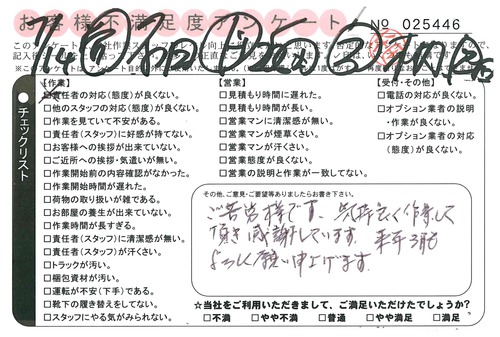 お客様不満足度アンケート
No 025446
チェックリスト
【作業】
□責任者の対応(態度)が良くない。
□他のスタッフの対応(態度)が良くない。
□作業を見ていて不安がある。
□責任者(スタッフ)に好感が持てない。
□お客様への挨拶が出来ていない。
□ご近所への挨拶・気遣いが無い。
□作業開始前の内容確認がなかった。
□作業開始時間が遅れた。
□荷物の取り扱いが雑である。
□お部屋の養生が出来ていない。
□作業時間が長すぎる。
□責任者(スタッフ)に清潔感が無い。
□責任者(スタッフ)が汗くさい。
□トラックが汚い。
□梱包資材が汚い。
□運転が不安(下手)である。
□靴下の履き替えをしてない。
□スタッフにやる気がみられない。
【営業】
□見積もり時間に遅れた。
□見積もり時間が長い。
□営業マンに清潔感が無い。
□営業マンが煙草くさい。
□営業マンが汗くさい。
□営業態度が良くない。
□営業の説明と作業が一致してない。
【受付・その他】
□電話の対応が良くない。
□オプション業者の説明
・作業が良くない。
□オプション業者の対応
(態度)が良くない。
その他、ご意見・ご要望等ありましたらお書き下さい。
ご苦労様です。気持よく作業して
頂き感謝しています。来年3月も
よろしく願い申上げます。
☆当社をご利用いただきまして、ご満足いただけたでしょうか?
□不満 □やや不満 □普通 □やや満足 □満足